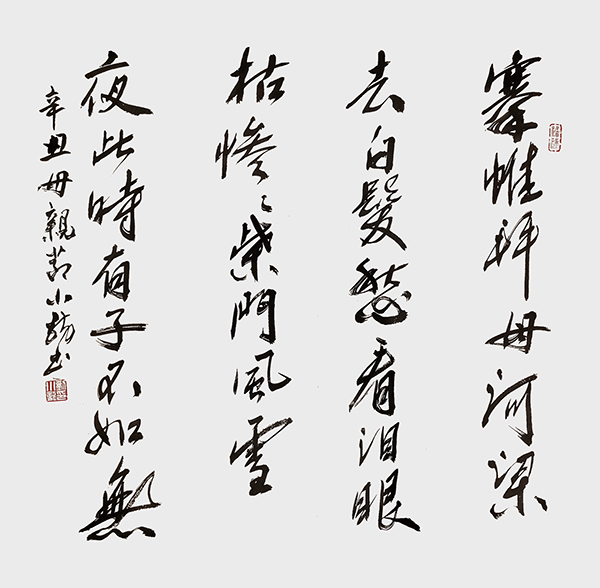 搴帷拜母河梁
去白髮愁看泪眼
枯惨々柴門風雪
夜此時有子不如無
辛丑母親節小书